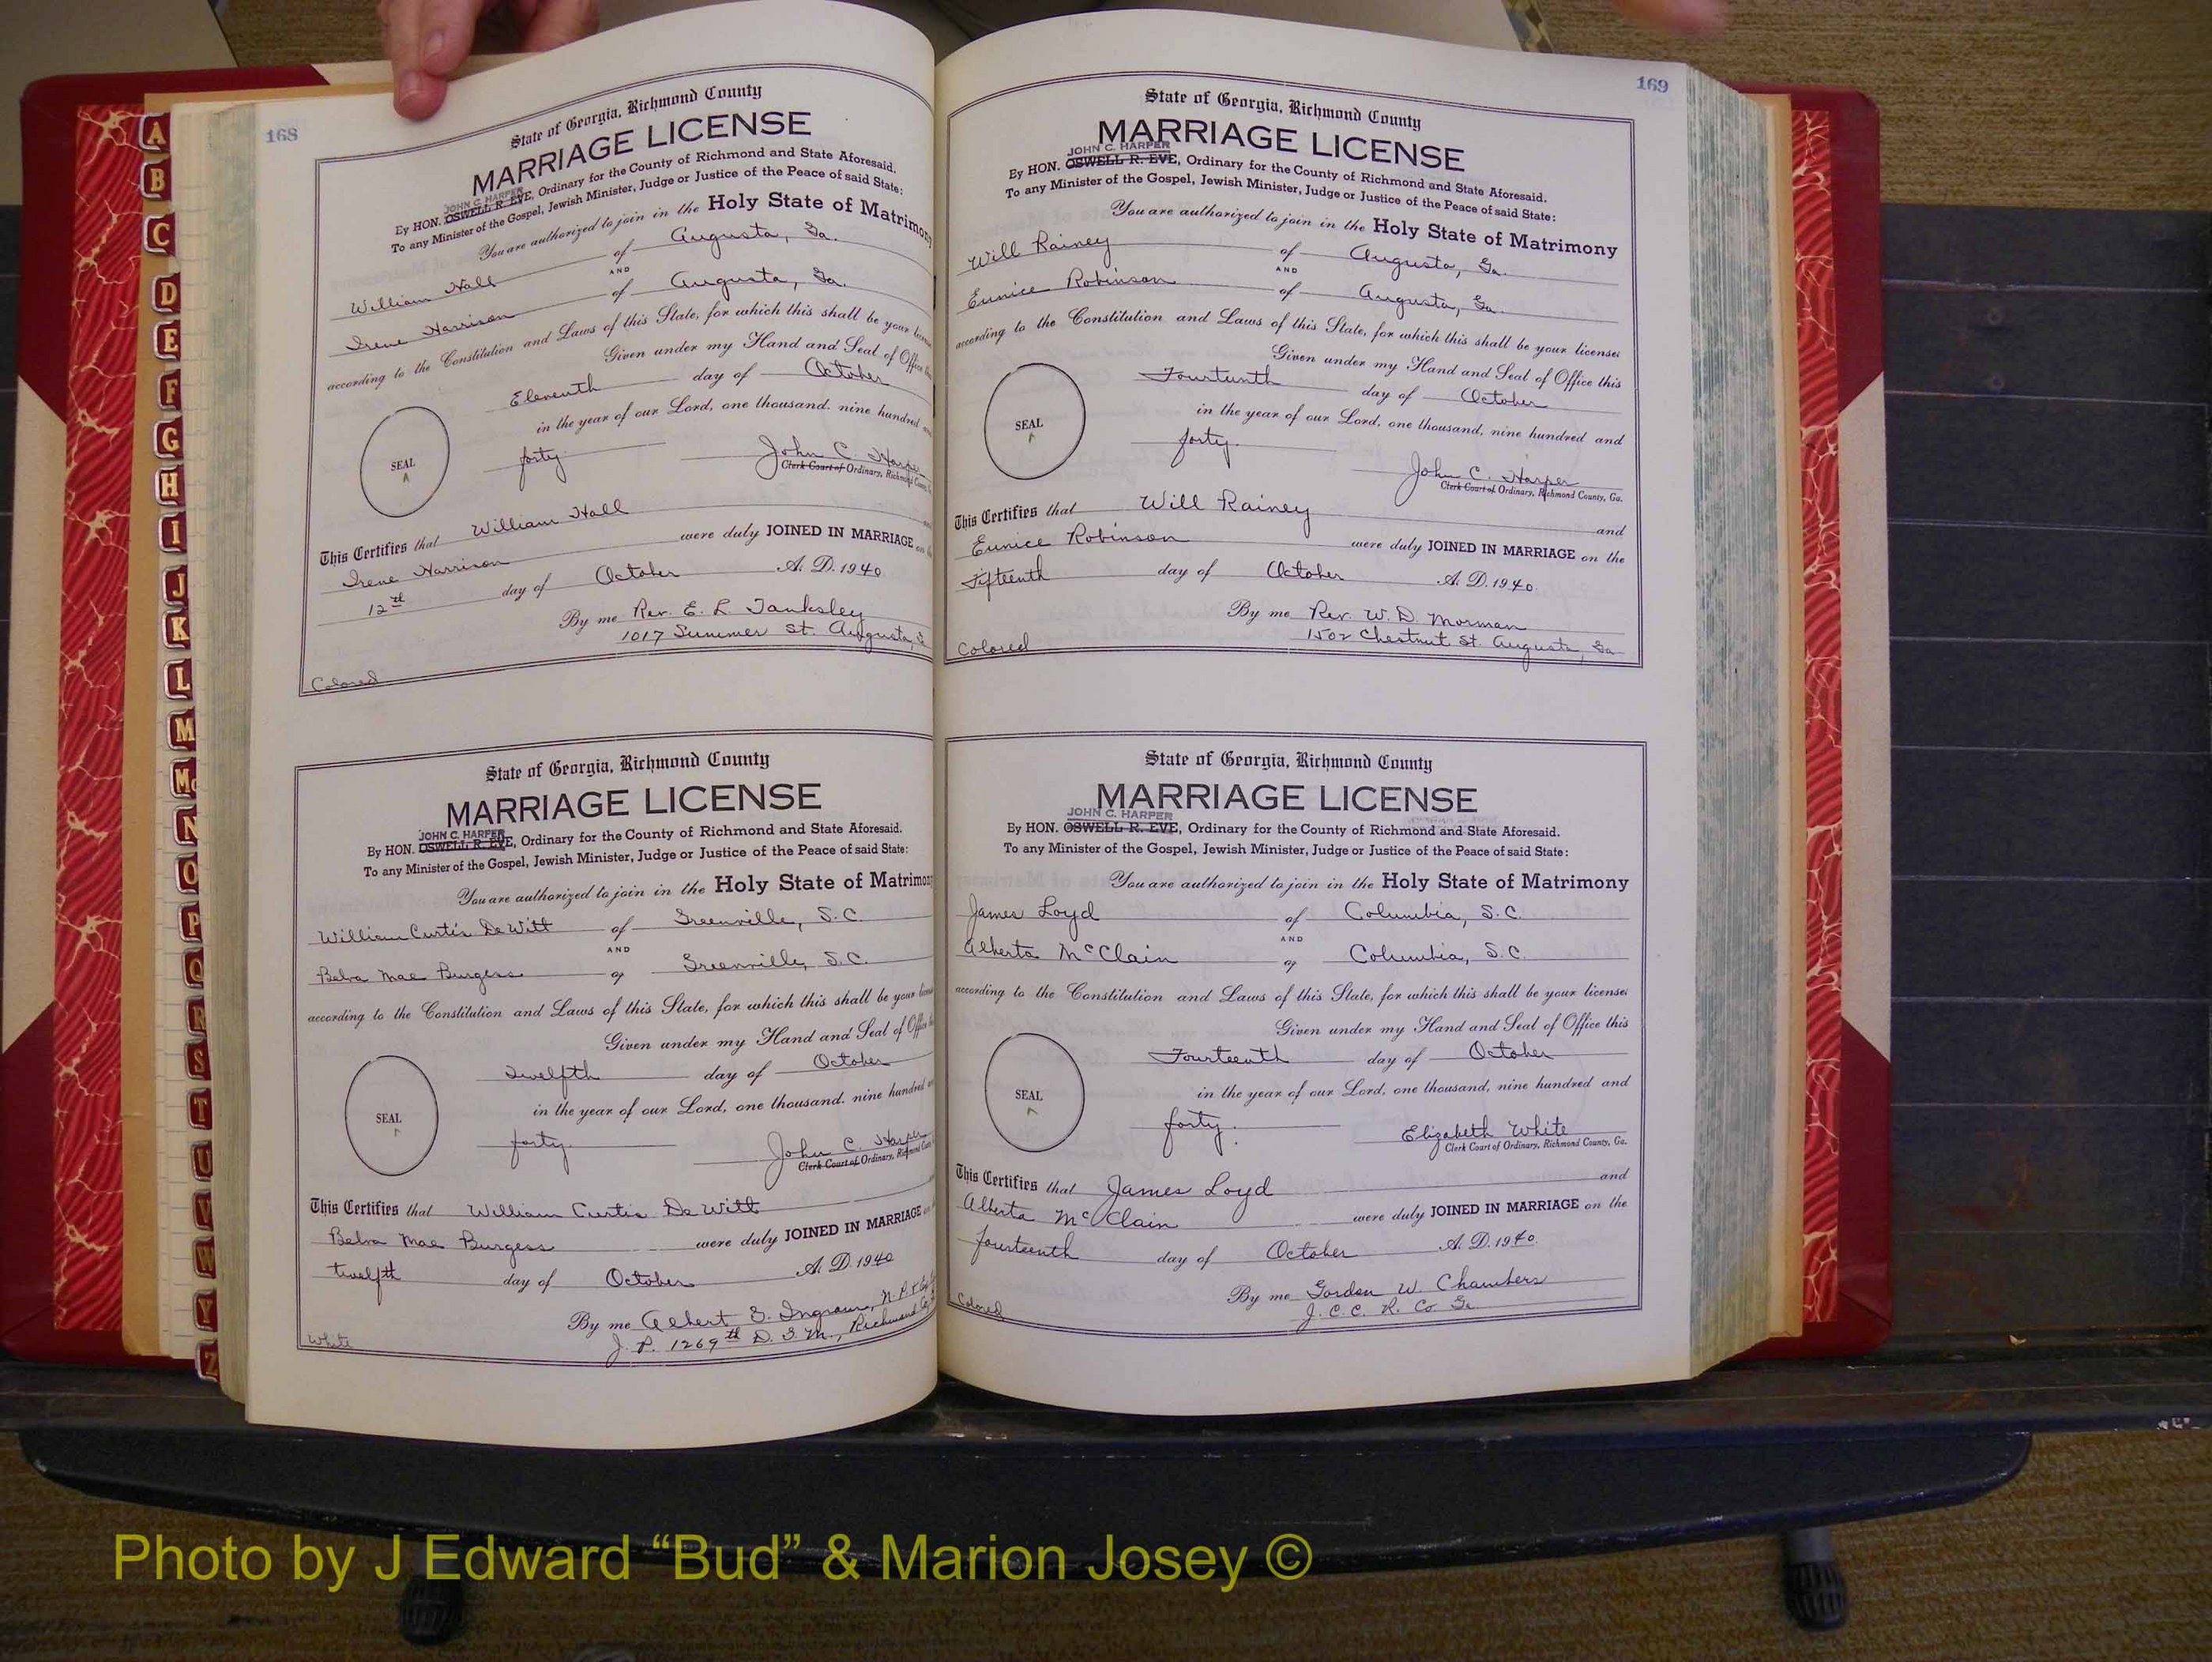 168
State of Georgia, Richmond County
MARRIAGE LICENSE
JOHN C. HARPER
By HON. OSWELL R. EVE, Ordinary for the County of Richmond and State Aforesaid.
To any Minister of the Gospel, Jewish Minister, Judge or Justice of the Peace of said State:
You are authorized to join in the Holy State of Matrimony
William Hall of Augusta, Ga.
AND
Irene Harrison of Augusta, Ga.
according to the Constitution and Laws of this State, for which this shall be your license
Given under my Hand and Seal of Office
Eleventh day of October
in the year of our Lord, one thousand. nine hundred
SEAL forty.
John C. Harper
Clerk Court of Ordinary, Richmond County
This Certifies that William Hall
Irene Harrison were duly JOINED IN MARRIAGE
12th day of October A. D. 1940
By me Rev. E. L. Tanksley
1017 Summer St. Augusta,
Colored
State of Georgia, Richmond County
MARRIAGE LICENSE
JOHN C. HARPER
By HON. OSWELL R. EVE, Ordinary for the County of Richmond and State Aforesaid.
To any Minister of the Gospel, Jewish Minister, Judge or Justice of the Peace of said State:
You are authorized to join in the Holy State of Matrimony
William Curtis DeWitt of Greenville, S.C.
AND
Belva Mae Burgess of Greenville, S.C.
according to the Constitution and Laws of this State, for which this shall be your license
Given under my Hand and Seal of Office
Twelfth day of October
in the year of our Lord, one thousand. nine hundred
SEAL forty.
John C. Harper
Clerk Court of Ordinary, Richmond
This Certifies that William Curtis DeWitt
Belva Mae Burgess were duly JOINED IN MARRIAGE
twelfth day of October A. D. 1940
By me Albert G. Ingram, N.P.
J. P. 1269th D. G. M., Richmond Co.
White
169
State of Georgia, Richmond County
MARRIAGE LICENSE
JOHN C. HARPER
By HON. OSWELL R. EVE, Ordinary for the County of Richmond and State Aforesaid.
To any Minister of the Gospel, Jewish Minister, Judge or Justice of the Peace of said State:
You are authorized to join in the Holy State of Matrimony
Will Rainey of Augusta, Ga.
AND
Eunice Robinson of Augusta, Ga.
according to the Constitution and Laws of this State, for which this shall be your license:
Given under my Hand and Seal of Office this
Fourteenth day of October
in the year of our Lord, one thousand, nine hundred and
SEAL forty.
John C. Harper
Clerk Court of Ordinary, Richmond County, Ga.
This Certifies that Will Rainey and
Eunice Robinson were duly JOINED IN MARRIAGE on the
Fifteenth day of October A. D. 1940.
By me Rev. W. D. Morman
1502 Chestnut St. Augusta, Ga
Colored
State of Georgia, Richmond County
MARRIAGE LICENSE
JOHN C. HARPER
By HON. OSWELL R. EVE, Ordinary for the County of Richmond and State Aforesaid.
To any Minister of the Gospel, Jewish Minister, Judge or Justice of the Peace of said State:
You are authorized to join in the Holy State of Matrimony
James Loyd of Columbia, S.C.
AND
Alberta McClain of Columbia, S.C.
according to the Constitution and Laws of this State, for which this shall be your license:
Given under my Hand and Seal of Office this
Fourteenth day of October
in the year of our Lord, one thousand, nine hundred and
SEAL forty.
Elizabeth White
Clerk Court of Ordinary, Richmond County, Ga.
This Certifies that James Loyd and
Alberta McClain were duly JOINED IN MARRIAGE on the
fourteenth day of October A. D. 1940.
By me Gordon W. Chambers
J. C. C. R. Co Ga
Colored
A
B
C
D
E
F
G
H
I
J
K
L
M
Mc
N
O
P
Q
R
S
T
U
V
W
Y
Z
Photo by J Edward “Bud” & Marion Josey ©